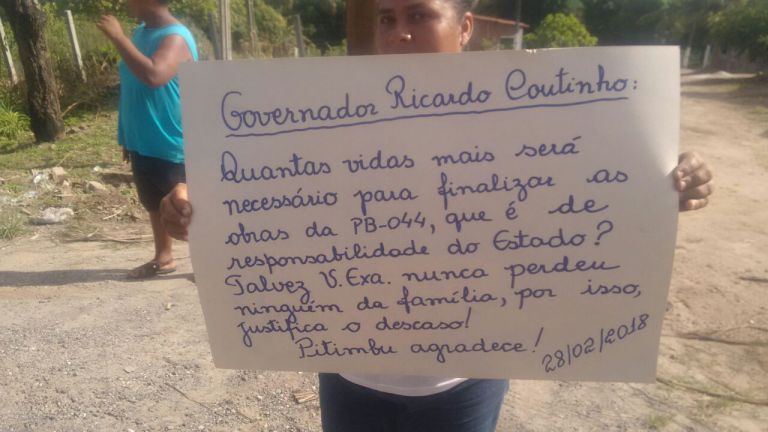 Governador Ricardo Coutinho:
Quantas vidas mais será
necessário para finalizar as
obras da PB-044, que é de
responsabilidade do Estado?
Talvez V. Exa. nunca perdeu
ninguém da família, por isso,
justifica o descaso!
Pitimbu agradece! 28/02/2018